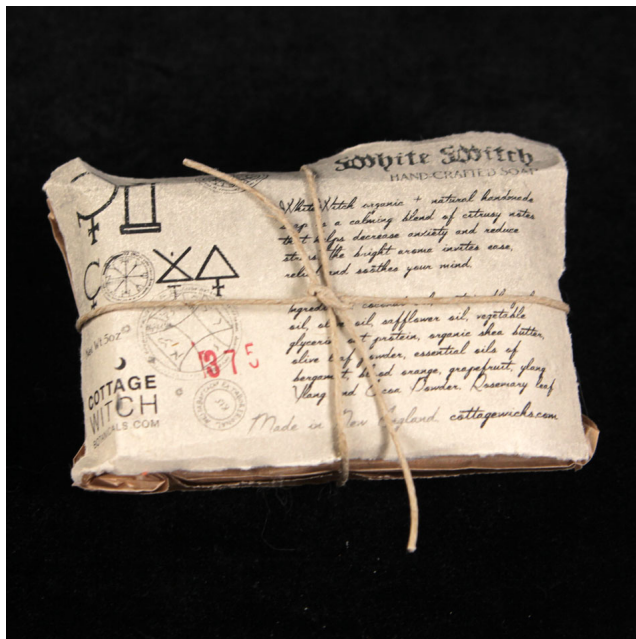 White Witch
HAND-CRAFTED SOAP
White Witch organic + natural handmade
is a calming blend of citrusy notes
that helps decrease anxiety and reduce
the bright aroma invites ease,
and soothes your mind.
coconut
oil, oil, safflower oil, vegetable
protein, organic shea butter,
olive leaf powder, essential oils of
bergamot, blood orange, grapefruit, ylang
Ylang and Cocoa Powder, Rosemary leaf
Made in New England cottagewichs.com
Net Wt. 5oz
1375
COTTAGE
WITCH
BOTANICALS.COM